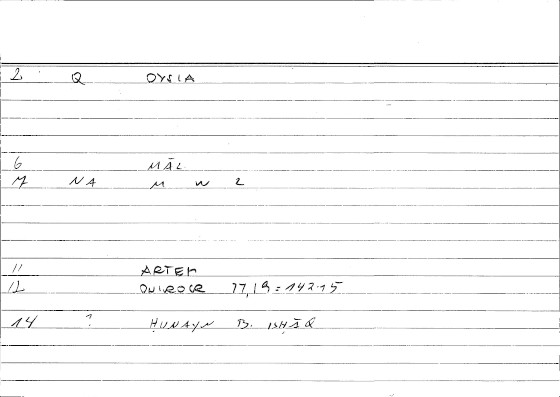 2 Q OYSIA
6 MĀL
7 NA M W L
11 ARTEM
12 ONIROCR 77,19 = 142.15
14 ? ḤUNAYN B. ISḤĀQ